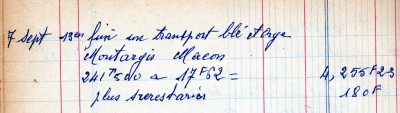 7 Sept 1300 fini un transport blé et orge
Montargis Macon
241T500 a 17F62 = 4,255F23
plus surestaries 180F